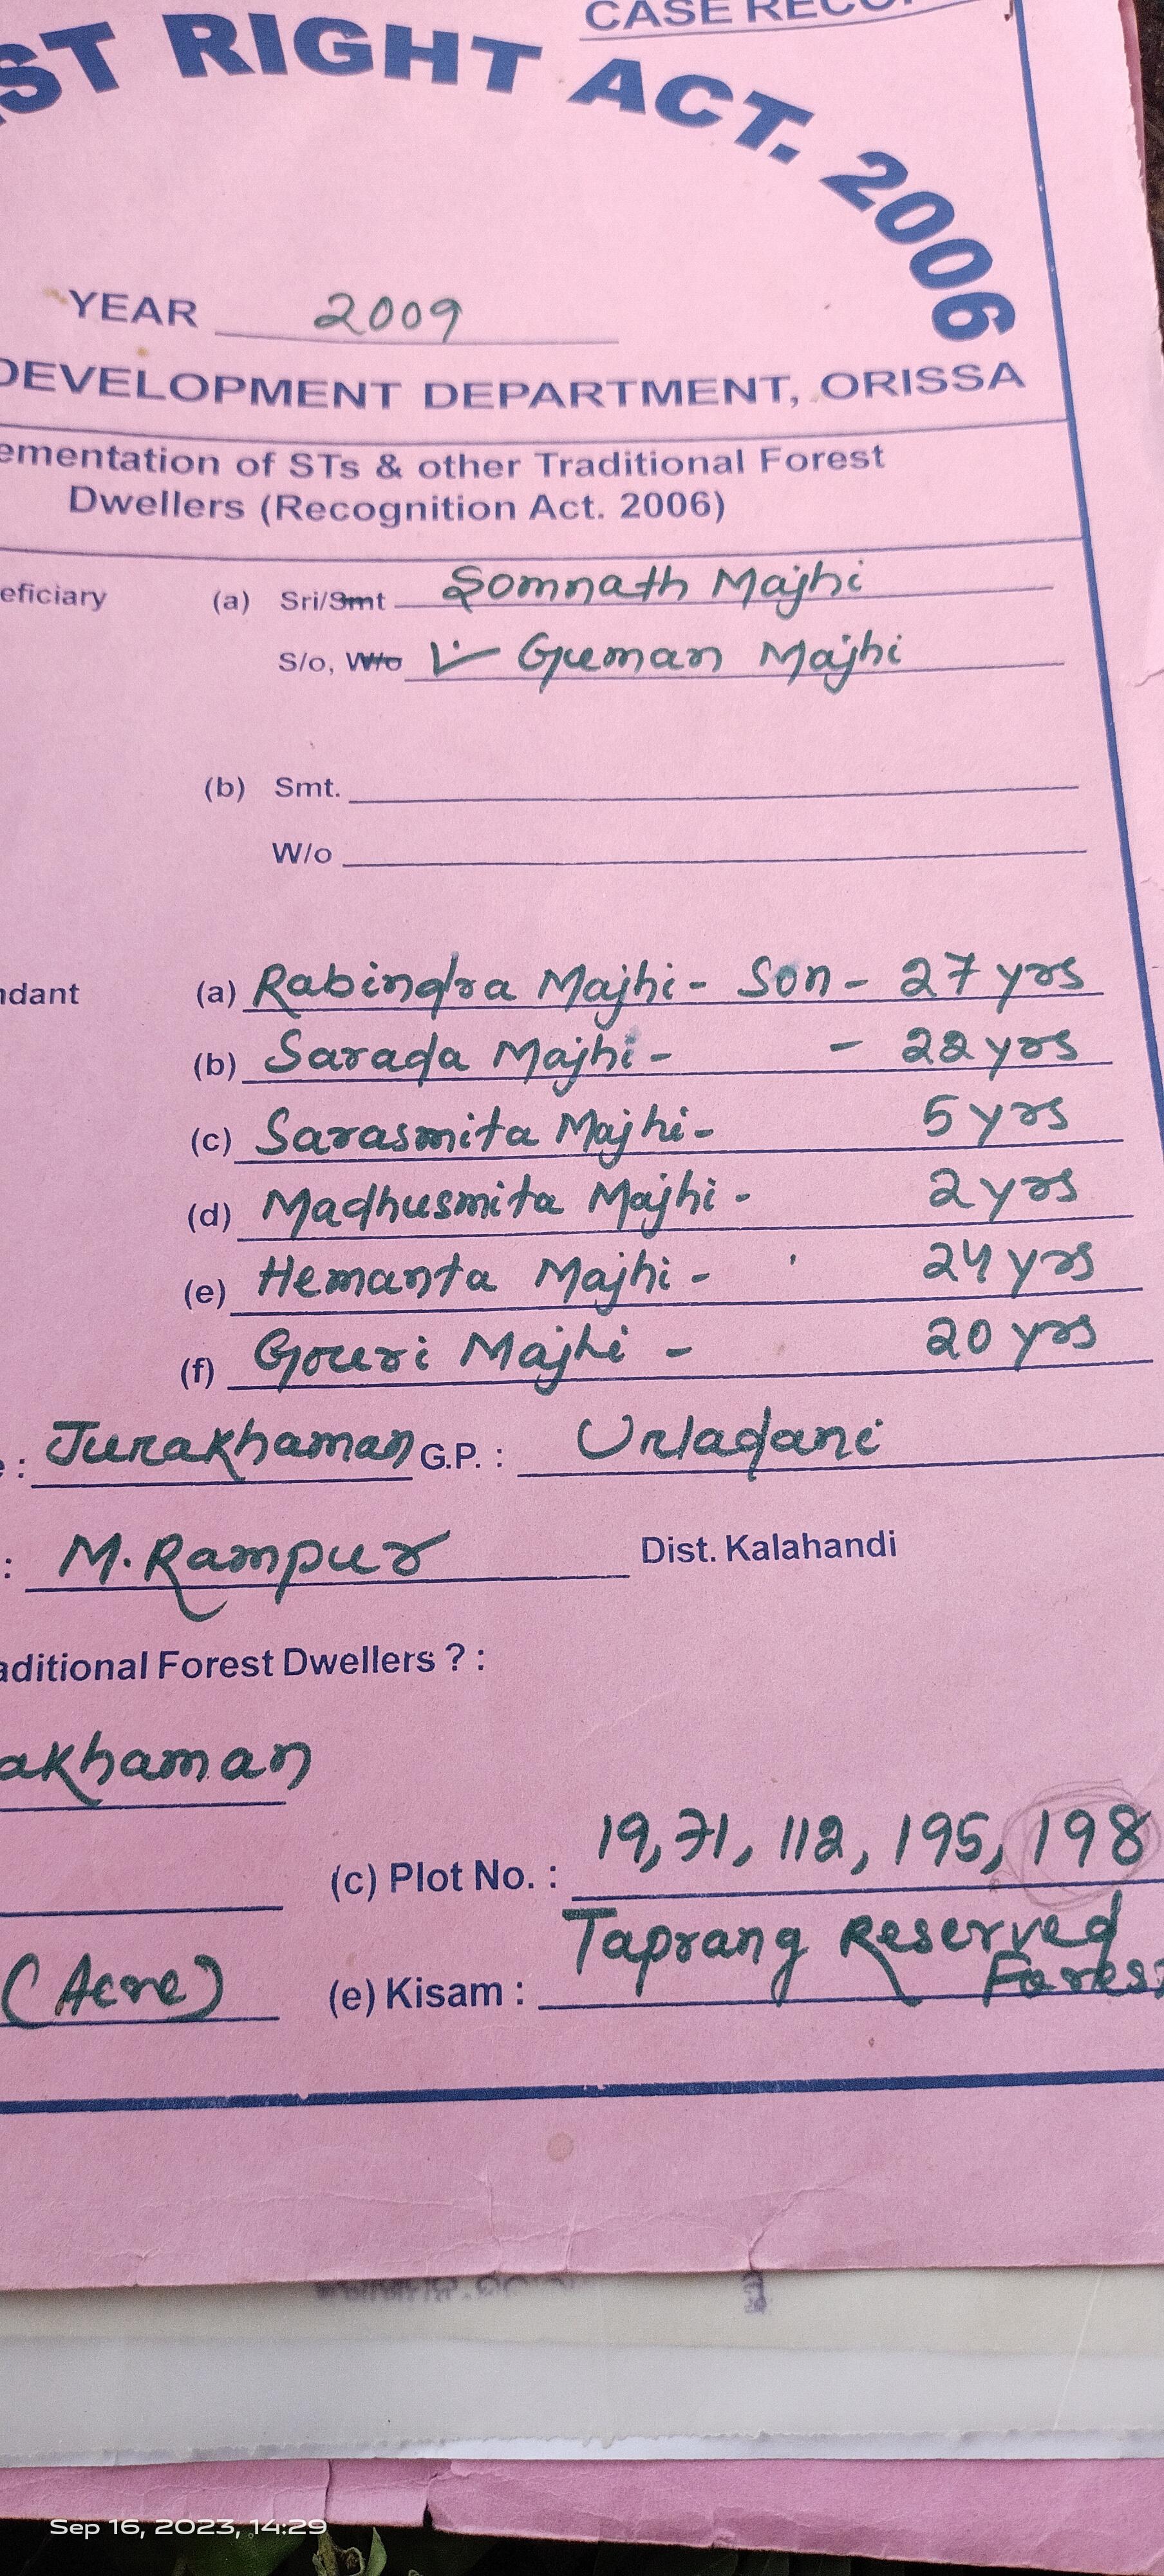 CASE RECO
ST RIGHT ACT. 2006
YEAR 2009
DEVELOPMENT DEPARTMENT, ORISSA
ementation of STs & other Traditional Forest
Dwellers (Recognition Act. 2006)
eficiary (a) Sri/Smt Somnath Majhi
S/o, W/o Guman Majhi
(b) Smt.
W/o
ndant (a) Rabindra Majhi - Son - 27 yrs
(b) Sarada Majhi - - 22 yrs
(c) Sarasmita Majhi - 5 yrs
(d) Madhusmita Majhi - 2 yrs
(e) Hemanta Majhi - 24 yrs
(f) Gouri Majhi - 20 yrs
e : Jurakhaman G.P. : Urladani
: M. Rampur Dist. Kalahandi
aditional Forest Dwellers ? :
akhaman
(c) Plot No. : 19, 71, 112, 195, 198
(Acre) (e) Kisam : Taprang Reserved
Forest
Sep 16, 2023, 14:29